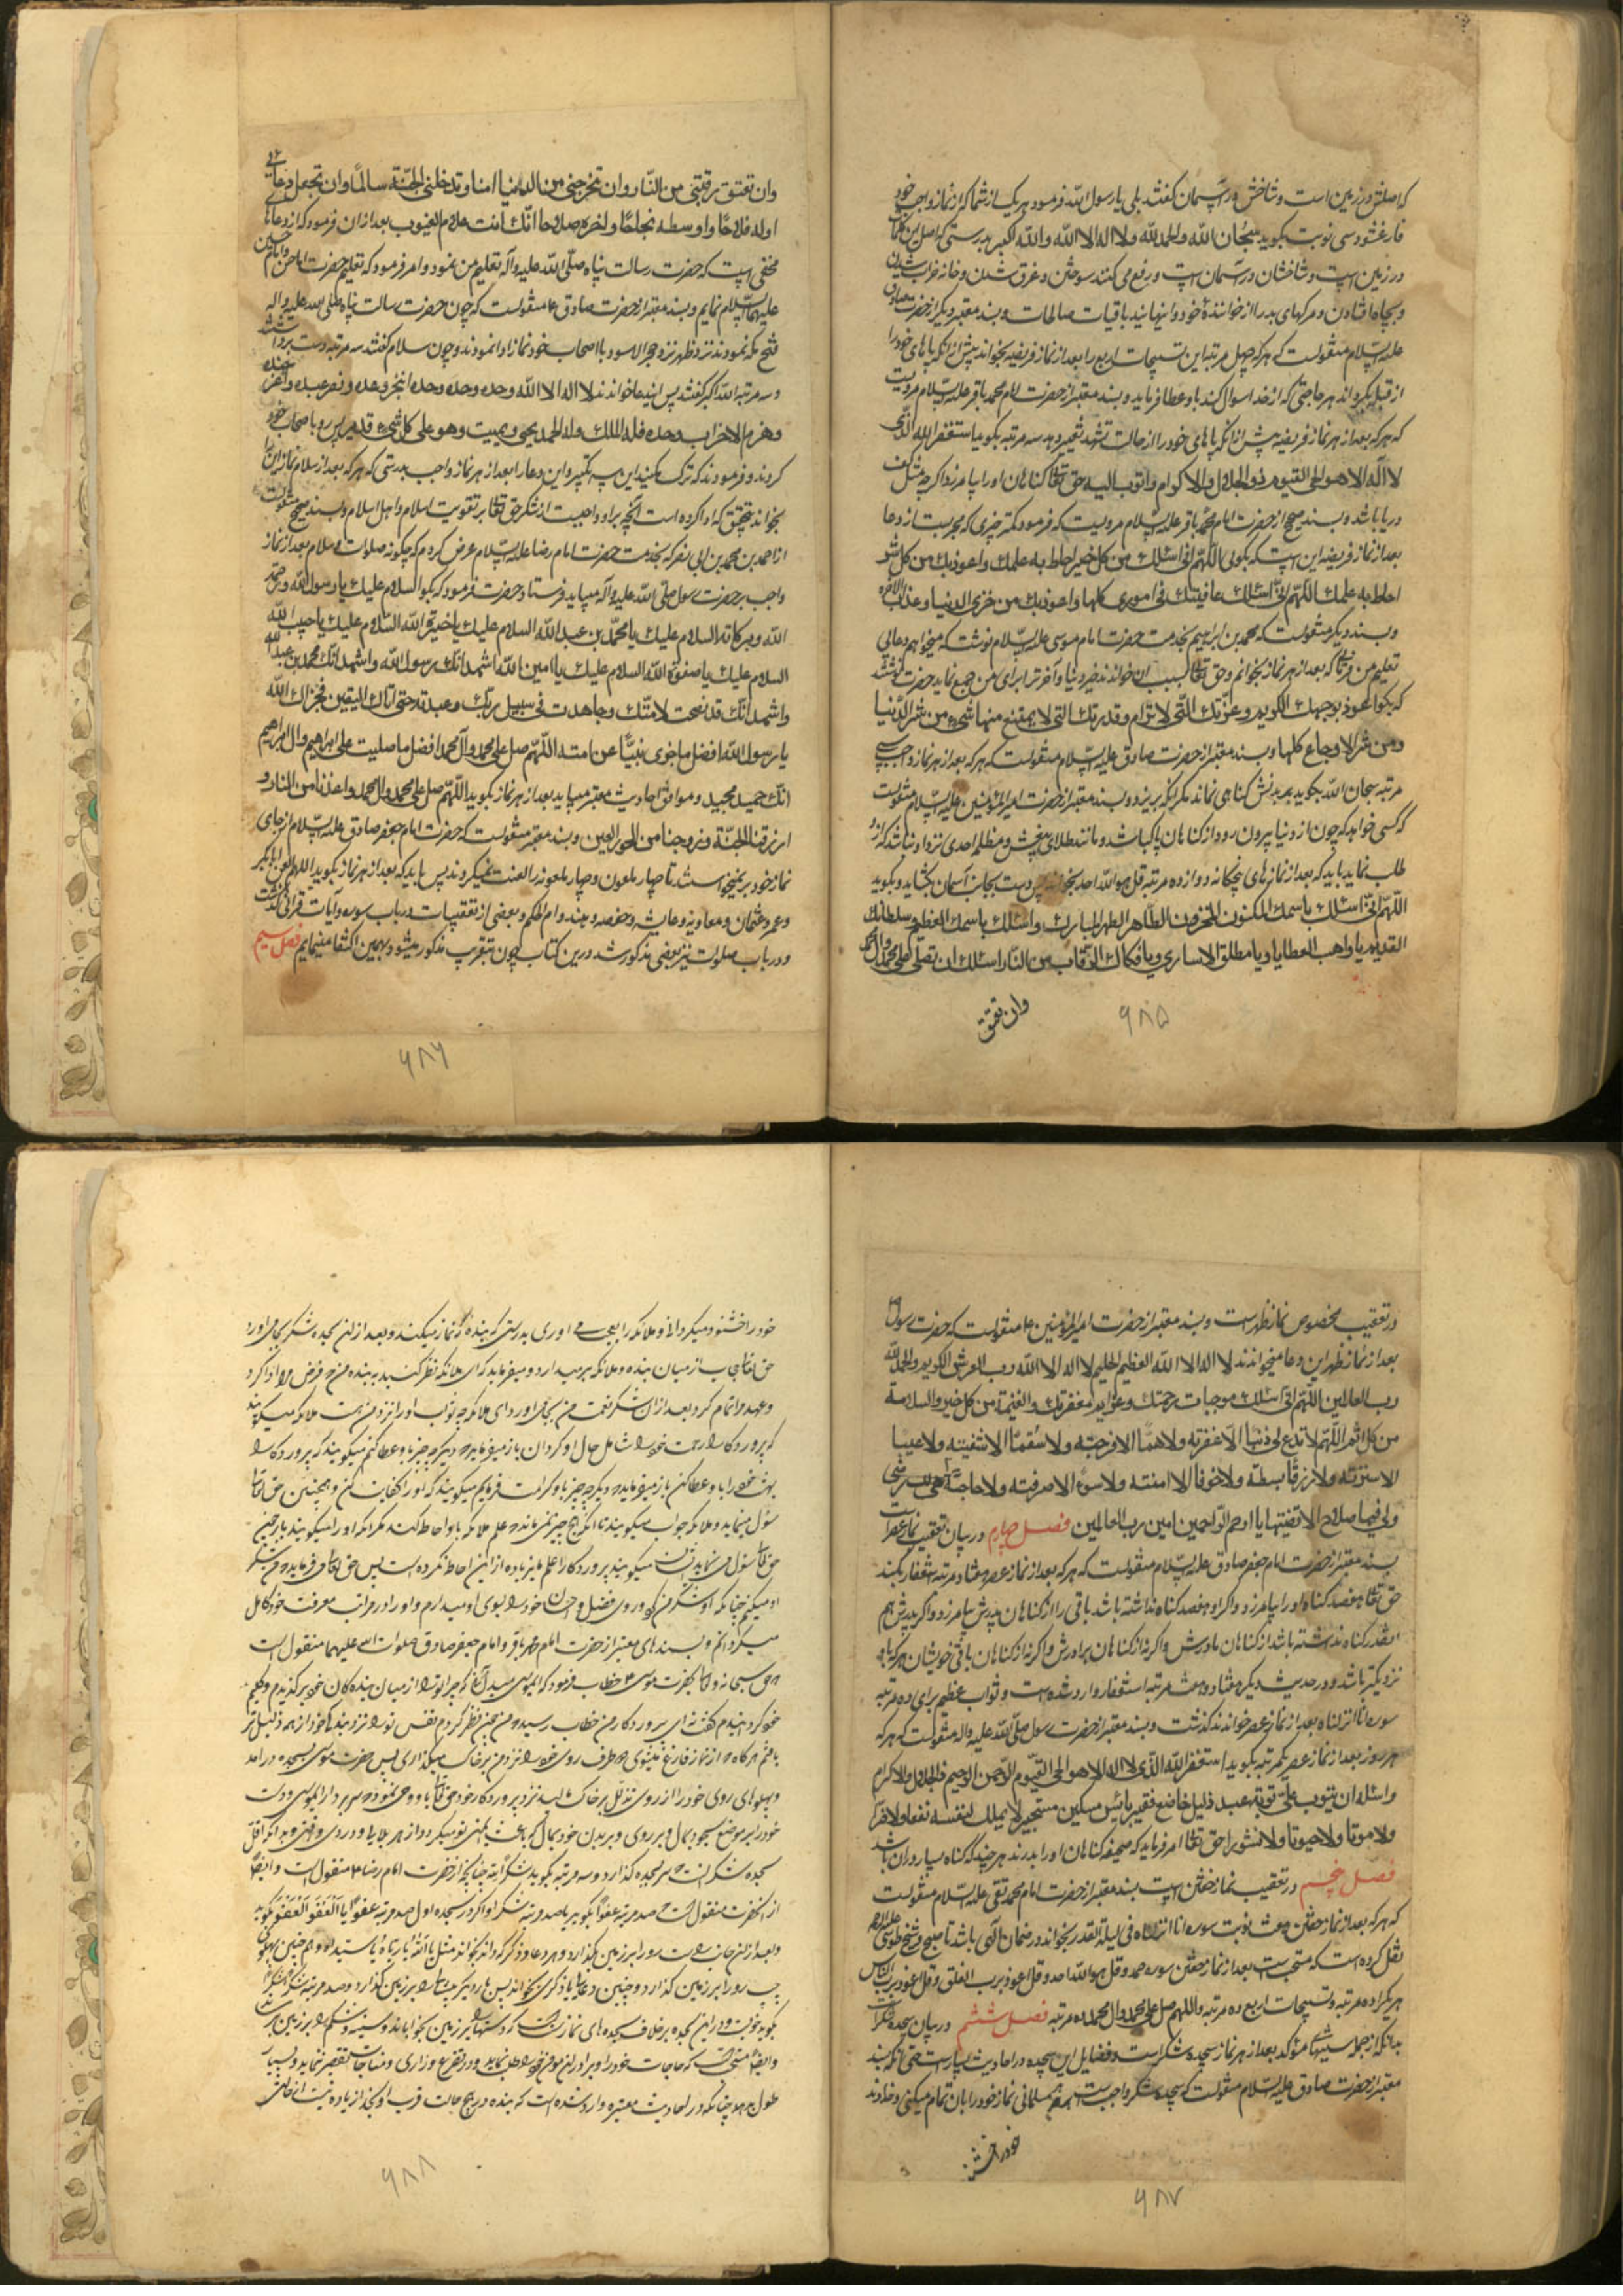 که اصلش در زمین است و شاخش در آسمان گفتند بلی یا رسول الله فرمود هر یک از شما که از نماز واجب خود
فارغ شود سی نوبت بگوید سبحان الله والحمد لله ولا اله الا الله والله اکبر بدرستی که اصل این کلمات
در زمین است و شاخشان در آسمان است و رفع می کنند سوختن و غرق شدن و خانه خراب شدن
و بچاه افتادن و مرگهای بد را از خوانندهٔ خود و اینهایند باقیات صالحات و بسند معتبر دیگر از حضرت صادق
علیه السلام منقولست که هر که چهل مرتبه این تسبیحات اربع را بعد از نماز فریضه بخواند پیش از آنکه پاهای خود را
از قبله بگرداند هر حاجتی که از خدا سوال کند باو عطا فرماید و بسند معتبر از حضرت امام محمد باقر علیه السلام مرویست
که هر که بعد از هر نماز فریضه پیش از آنکه پاهای خود را از حالت تشهد تغییر دهد سه مرتبه بگوید استغفر الله الذی
لا اله الا هو الحی القیوم ذو الجلال والاکرام واتوب الیه حق تعالی گناهان او را بیامرزد اگر چه مثل کف
دریا باشد و بسند صحیح از حضرت امام محمد باقر علیه السلام مرویست که فرمود کمتر چیزی که مجزیست از دعا
بعد از نماز فریضه این است که بگوئی اللهم انی اسئلک من کل خیر احاط به علمک واعوذ بک من کل شر
احاط به علمک اللهم انی اسئلک عافیتک فی اموری کلها واعوذ بک من خزی الدنیا وعذاب الاخره
و بسند دیگر منقولست که محمد بن ابراهیم بخدمت حضرت امام موسی علیه السلام نوشت که میخواهم دعایی
تعلیم من فرمائی که بعد از هر نماز بخوانم و حق تعالی بسبب آن خواندن خیر دنیا و آخرت را برای من جمع نماید حضرت نوشتند
که بگو اعوذ بوجهک الکریم وعزتک التی لا ترام وقدرتک التی لا یمتنع منها شیء من شر الدنیا
ومن شر الاوجاع کلها و بسند معتبر از حضرت صادق علیه السلام منقولست که هر که بعد از هر نماز واجب سی
مرتبه سبحان الله بگوید بر بدنش گناهی نماند مگر آنکه بریزد و بسند معتبر از حضرت امیر المؤمنین علیه السلام منقولست
که کسی خواهد که چون از دنیا بیرون رود از گناهان پاک باشد و مانند طلای بیغش و مظلمه احدی نزد او نباشد که از او
طلب نماید باید که بعد از نمازهای پنجگانه دوازده مرتبه قل هو الله احد بخواند پس دست بجانب آسمان بگشاید و بگوید
اللهم انی اسئلک باسمک المکنون المخزون الطاهر الطهر المبارک واسئلک باسمک العظیم وسلطانک
القدیم یا واهب العطایا ویا مطلق الاساری ویا فکاک الرقاب من النار اسئلک ان تصلی علی محمد وآل محمد
وان تعتق
۶۸۵
وان تعتق رقبتی من النار وان تخرجنی من الدنیا امنا وتدخلنی الجنة سالما وان تجعل دعائی
اوله فلاحا واوسطه نجاحا واخره صلاحا انک انت علام الغیوب بعد از آن فرمود که از دعاهای
مخفی است که حضرت رسالت پناه صلی الله علیه وآله تعلیم من نمود و امر فرمود که تعلیم حضرت امام حسن و امام حسین
علیهما السلام نمایم و بسند معتبر از حضرت صادق ع منقولست که چون حضرت رسالت پناه صلی الله علیه وآله
فتح مکه نمودند نزد ظهر نزد حجر الاسود با اصحاب خود نماز ادا نمودند و چون سلام گفتند سه مرتبه دست برداشتند
و سه مرتبه الله اکبر گفتند پس این دعا خواندند لا اله الا الله وحده وحده وحده انجز وعده ونصر عبده واعز جنده
وهزم الاحزاب وحده فله الملک وله الحمد یحیی ویمیت وهو علی کل شیء قدیر پس رو باصحاب خود
کردند و فرمودند که ترک مکنید این سه تکبیر و این دعا را بعد از هر نماز واجب بدرستی که هر که بعد از سلام نماز این را
بخواند بتحقیق که ادا کرده است آنچه بر او واجبست از شکر حق تعالی بر تقویت اسلام و اهل اسلام و بسند صحیح منقولست
از احمد بن محمد بن ابی نصر که بخدمت حضرت امام رضا علیه السلام عرض کردم که چگونه صلوات و سلام بعد از نماز
واجب بر حضرت رسول صلی الله علیه وآله میباید فرستاد حضرت فرمود که بگو السلام علیک یا رسول الله ورحمة
الله وبرکاته السلام علیک یا محمد بن عبد الله السلام علیک یا خیرة الله السلام علیک یا حبیب الله
السلام علیک یا صفوة الله السلام علیک یا امین الله اشهد انک رسول الله واشهد انک محمد بن عبد الله
واشهد انک قد نصحت لامتک وجاهدت فی سبیل ربک وعبدته حتی اتاک الیقین فجزاک الله
یا رسول الله افضل ما جزی نبیا عن امته اللهم صل علی محمد وآل محمد افضل ما صلیت علی ابراهیم وال ابراهیم
انک حمید مجید و موافق احادیث معتبر میباید بعد از هر نماز بگوید اللهم صل علی محمد وال محمد واعذنا من النار و
ارزقنا الجنة وزوجنا من الحور العین و بسند معتبر منقولست که حضرت امام جعفر صادق علیه السلام از جای
نماز خود بر نمیخواستند تا چهار ملعون و چهار ملعونه را لعنت نمیکردند پس باید که بعد از هر نماز بگوید اللهم العن ابا بکر
وعمر وعثمان ومعاویه وعایشه وحفصه وهند وام الحکم و بعضی از تعقیبات در باب سوره و آیات قرآنی گذشت
و در باب صلوات نیز بعضی مذکور شد درین کتاب چون بتقریب مذکور میشود بهمین اکتفا مینمایم فصل سیم
۶۸۶
در تعقیب مخصوص نماز ظهر است و بسند معتبر از حضرت امیر المؤمنین ع منقولست که حضرت رسول ص
بعد از نماز ظهر این دعا میخواندند لا اله الا الله العظیم الحلیم لا اله الا الله رب العرش الکریم والحمد لله
رب العالمین اللهم انی اسئلک موجبات رحمتک وعزایم مغفرتک والغنیمة من کل خیر والسلامة
من کل اثم اللهم لا تدع لی ذنبا الا غفرته ولا هما الا فرجته ولا سقما الا شفیته ولا عیبا
الا سترته ولا رزقا بسطته ولا خوفا الا امنته ولا سوء الا صرفته ولا حاجة هی لک رضی
ولی فیها صلاح الا قضیتها یا ارحم الراحمین امین رب العالمین فصل چهارم در بیان تعقیب نماز عصر است
بسند معتبر از حضرت امام جعفر صادق علیه السلام منقولست که هر که بعد از نماز عصر هفتاد مرتبه استغفار بکند
حق تعالی هفصد گناه او را بیامرزد و اگر او هفصد گناه نداشته باشد باقی را از گناهان پدرش بیامرزد و اگر پدرش هم
آنقدر گناه نداشته باشد از گناهان مادرش و اگر نه از گناهان برادرش و اگر نه از گناهان باقی خویشان هر که باو
نزدیکتر باشد و در حدیث دیگر هفتاد و هفت مرتبه استغفار وارد شده است و ثواب عظیم برای ده مرتبه
سوره انا انزلناه بعد از نماز عصر خواندن گذشت و بسند معتبر از حضرت رسول صلی الله علیه وآله منقولست که هر که
هر روز بعد از نماز عصر یکمرتبه بگوید استغفر الله الذی لا اله الا هو الحی القیوم الرحمن الرحیم ذو الجلال والاکرام
واسئله ان یتوب علی توبة عبد ذلیل خاضع فقیر بائس مسکین مستجیر لا یملک لنفسه نفعا ولا ضرا
ولا موتا ولا حیوتا ولا نشورا حق تعالی امر فرماید که صحیفه گناهان او را بدرند هر چند که گناه بسیار در آن باشد
فصل پنجم در تعقیب نماز خفتن است بسند معتبر از حضرت امام محمد تقی علیه السلام منقولست
که هر که بعد از نماز خفتن هفت نوبت سوره انا انزلناه فی لیلة القدر بخواند در ضمان الهی باشد تا صبح و شیخ طوسی علیه الرحمه
نقل کرده است که مستحب است بعد از نماز خفتن سوره حمد و قل هو الله احد و قل اعوذ برب الفلق و قل اعوذ برب الناس
هر یک را ده مرتبه و تسبیحات اربع ده مرتبه واللهم صل علی محمد وال محمد ده مرتبه فصل ششم در بیان سجده شکر است
بدانکه از جمله سنتهای مؤکد بعد از هر نماز سجده شکر است و فضایل این سجده در احادیث بسیار است حتی آنکه بسند
معتبر از حضرت صادق علیه السلام منقولست که سجده شکر واجب است بر هر مسلمانی نماز خود را بآن تمام میکنی و خداوند
خود را خشنود
۶۸۷
خود را خشنود میگردانی و ملائکه را بعجب می آوری بدرستی که بنده که نماز میکند و بعد از آن سجده شکر بجا می آورد
حق تعالی حجاب از میان بنده و ملائکه برمیدارد و میفرماید که ای ملائکه نظر کنید به بنده من که فرض مرا ادا کرد
وعهد مرا تمام کرد بعد از آن شکر نعمت من بجا می آورد ای ملائکه چه ثواب او را نزد من هست ملائکه میگویند
که پروردگارا رحمت خود را شامل حال او گردان باز میفرماید دیگر چه چیز باو عطا کنم میگویند که پروردگارا
بهشت خود را باو عطا کن باز میفرماید دیگر چه چیز باو کرامت فرمایم میگویند که او را کفایت کن و همچنین حق تعالی
سؤال مینماید و ملائکه جواب میگویند تا آنکه هیچ چیز نمی ماند
حق تعالی سؤال می نماید
او میکنم چنانکه او شکر من کرد و روی فضل و احسان خود را بسوی او میدارم و او را در مراتب معرفت خود کامل
میگردانم و بسندهای معتبر از حضرت امام محمد باقر و امام جعفر صادق صلوات الله علیهما منقول است
که حق سبحانه و تعالی بحضرت موسی ع خطاب فرمود که ای موسی میدانی که چرا تو را از میان بندگان خود برگزیدم و کلیم
خود گردانیدم گفت نه ای پروردگار من خطاب رسید که من نظر کردم نفس تو را نزد خود از همه ذلیل تر
یافتم هر گاه که از نماز فارغ میشوی هر دو طرف روی خود را نزد من بر خاک میگذاری پس حضرت موسی بسجده در آمد
و پهلوهای روی خود را از روی تذلل بر خاک مالید نزد پروردگار خود حق تعالی باو وحی نمود که سر بردار ای موسی و دست
خود را بر موضع سجود بمال و بر روی و بر بدن خود بمال
سجده شکر آنست که سر بسجده گذارد و سه مرتبه بگوید شکرا لله چنانچه از حضرت امام رضا ع منقول است و ایضا
از آنحضرت منقول است که صد مرتبه عفوا بگوید یا صد مرتبه شکرا و اگر در سجده اول صد مرتبه عفوا یا العفو العفو بگوید
چپ رو را بر زمین گذارد و چنین دعا یا ذکری بخواند پس باز رو را بر زمین گذارد و صد مرتبه شکرا شکرا
بگوید خوبست و در این سجده بر خلاف سجده های نماز سنت است که دستها را بر زمین بخواباند و سینه و شکم را بر زمین برساند
۶۸۸